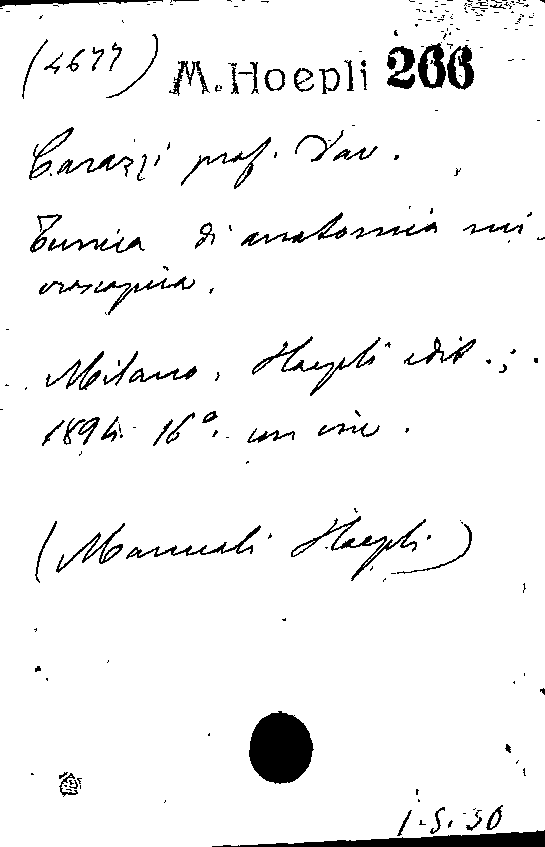 (4677) M. Hoepli 266
Carazzi prof. Dav.
Tecnica di anatomia mi-
croscopica.
Milano, Hoepli edit.;
1894. 16°. con inc.
(Manuali Hoepli)
1.5.30